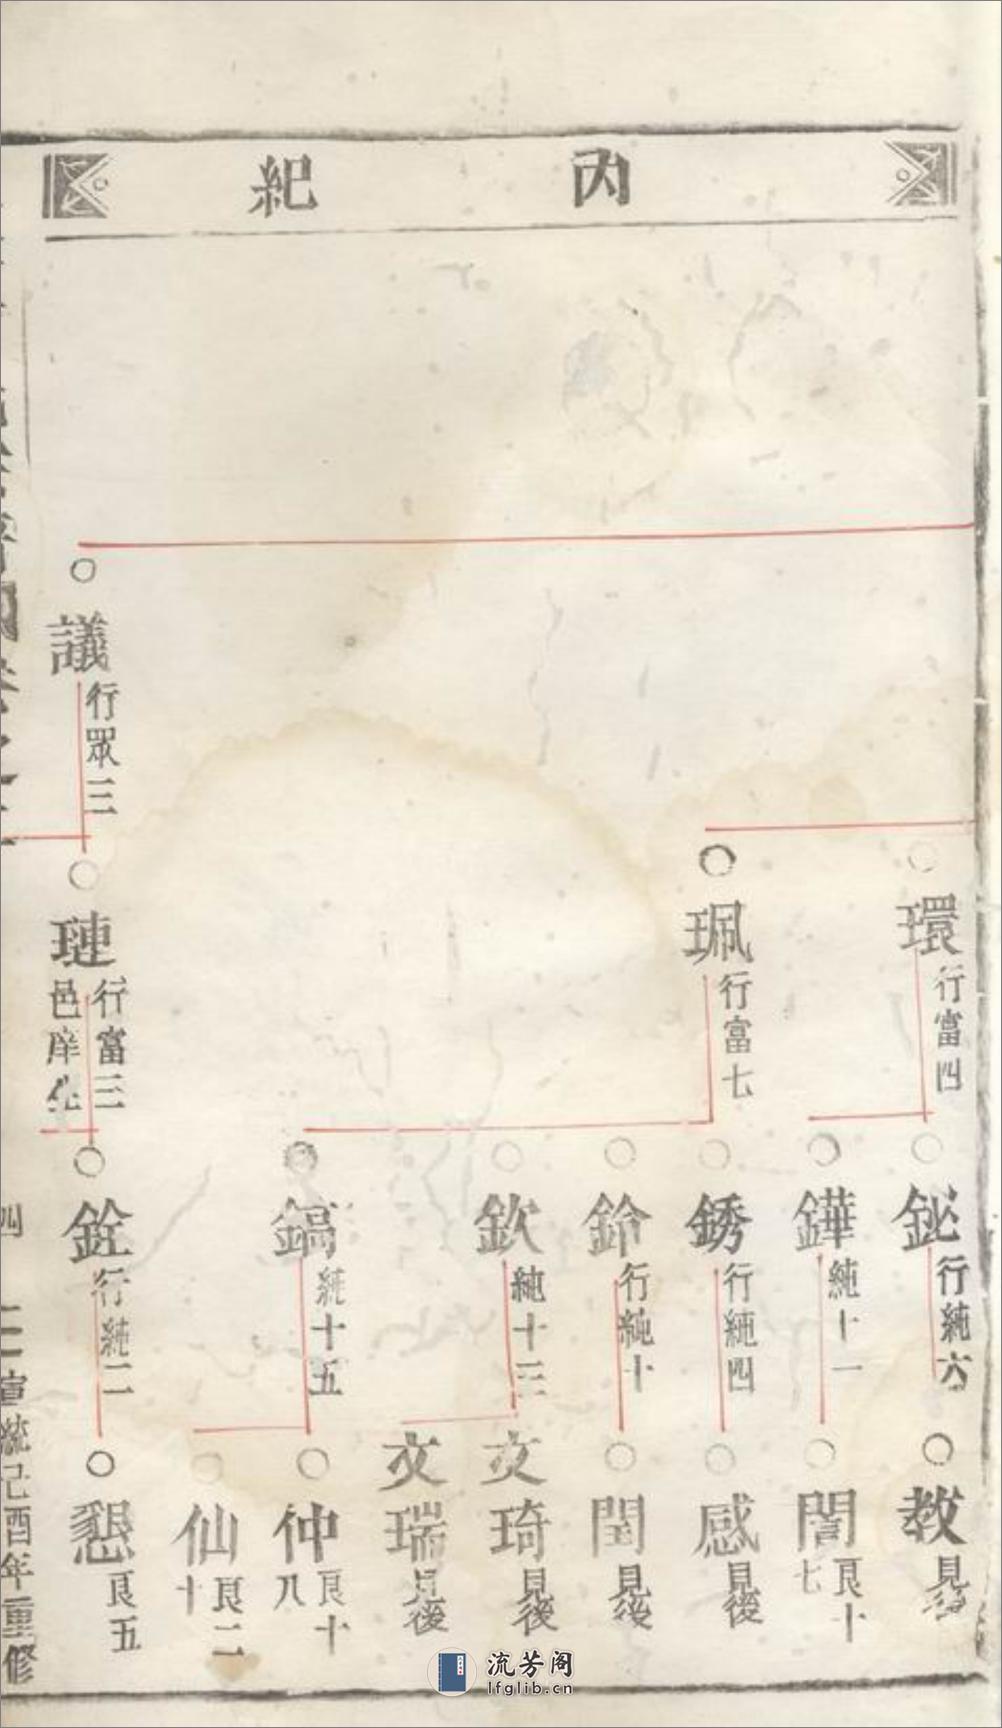 内紀
議
行眾三
環
行富四
珮
行富七
璉
行富三
邑庠生
鉍
行純六
鏵
純十一
銹
行純四
鈴
行純十
欽
純十三
鎬
純十五
銓
行純二
教
見後
誾
良十七
感
見後
閏
見後
文琦
見後
文瑞
見後
仲
良十八
仙
良二十
懇
良五
四
宣統己酉年重修
流芳阁
lfglib.cn